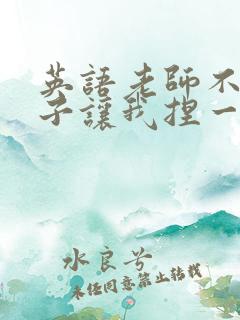 英語老師不
子讓我捏一
水良兮
未任同意禁止轉載